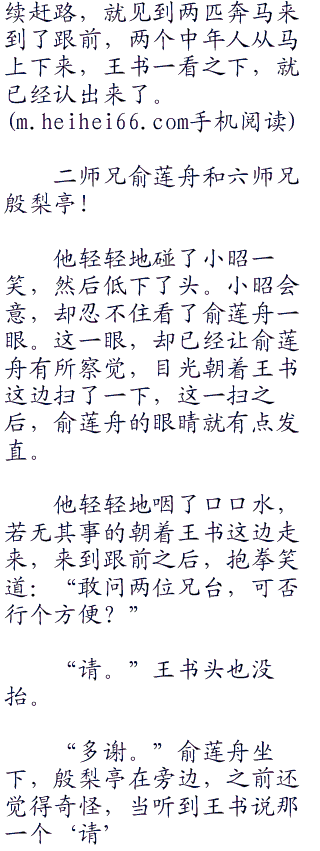 续赶路，就见到两匹奔马来
到了跟前，两个中年人从马
上下来，王书一看之下，就
已经认出来了。
(m.heihei66.com手机阅读)
二师兄俞莲舟和六师兄
殷梨亭！
他轻轻地碰了小昭一
笑，然后低下了头。小昭会
意，却忍不住看了俞莲舟一
眼。这一眼，却已经让俞莲
舟有所察觉，目光朝着王书
这边扫了一下，这一扫之
后，俞莲舟的眼睛就有点发
直。
他轻轻地咽了口口水，
若无其事的朝着王书这边走
来，来到跟前之后，抱拳笑
道：“敢问两位兄台，可否
行个方便？”
“请。”王书头也没
抬。
“多谢。”俞莲舟坐
下，殷梨亭在旁边，之前还
觉得奇怪，当听到王书说那
一个‘请’